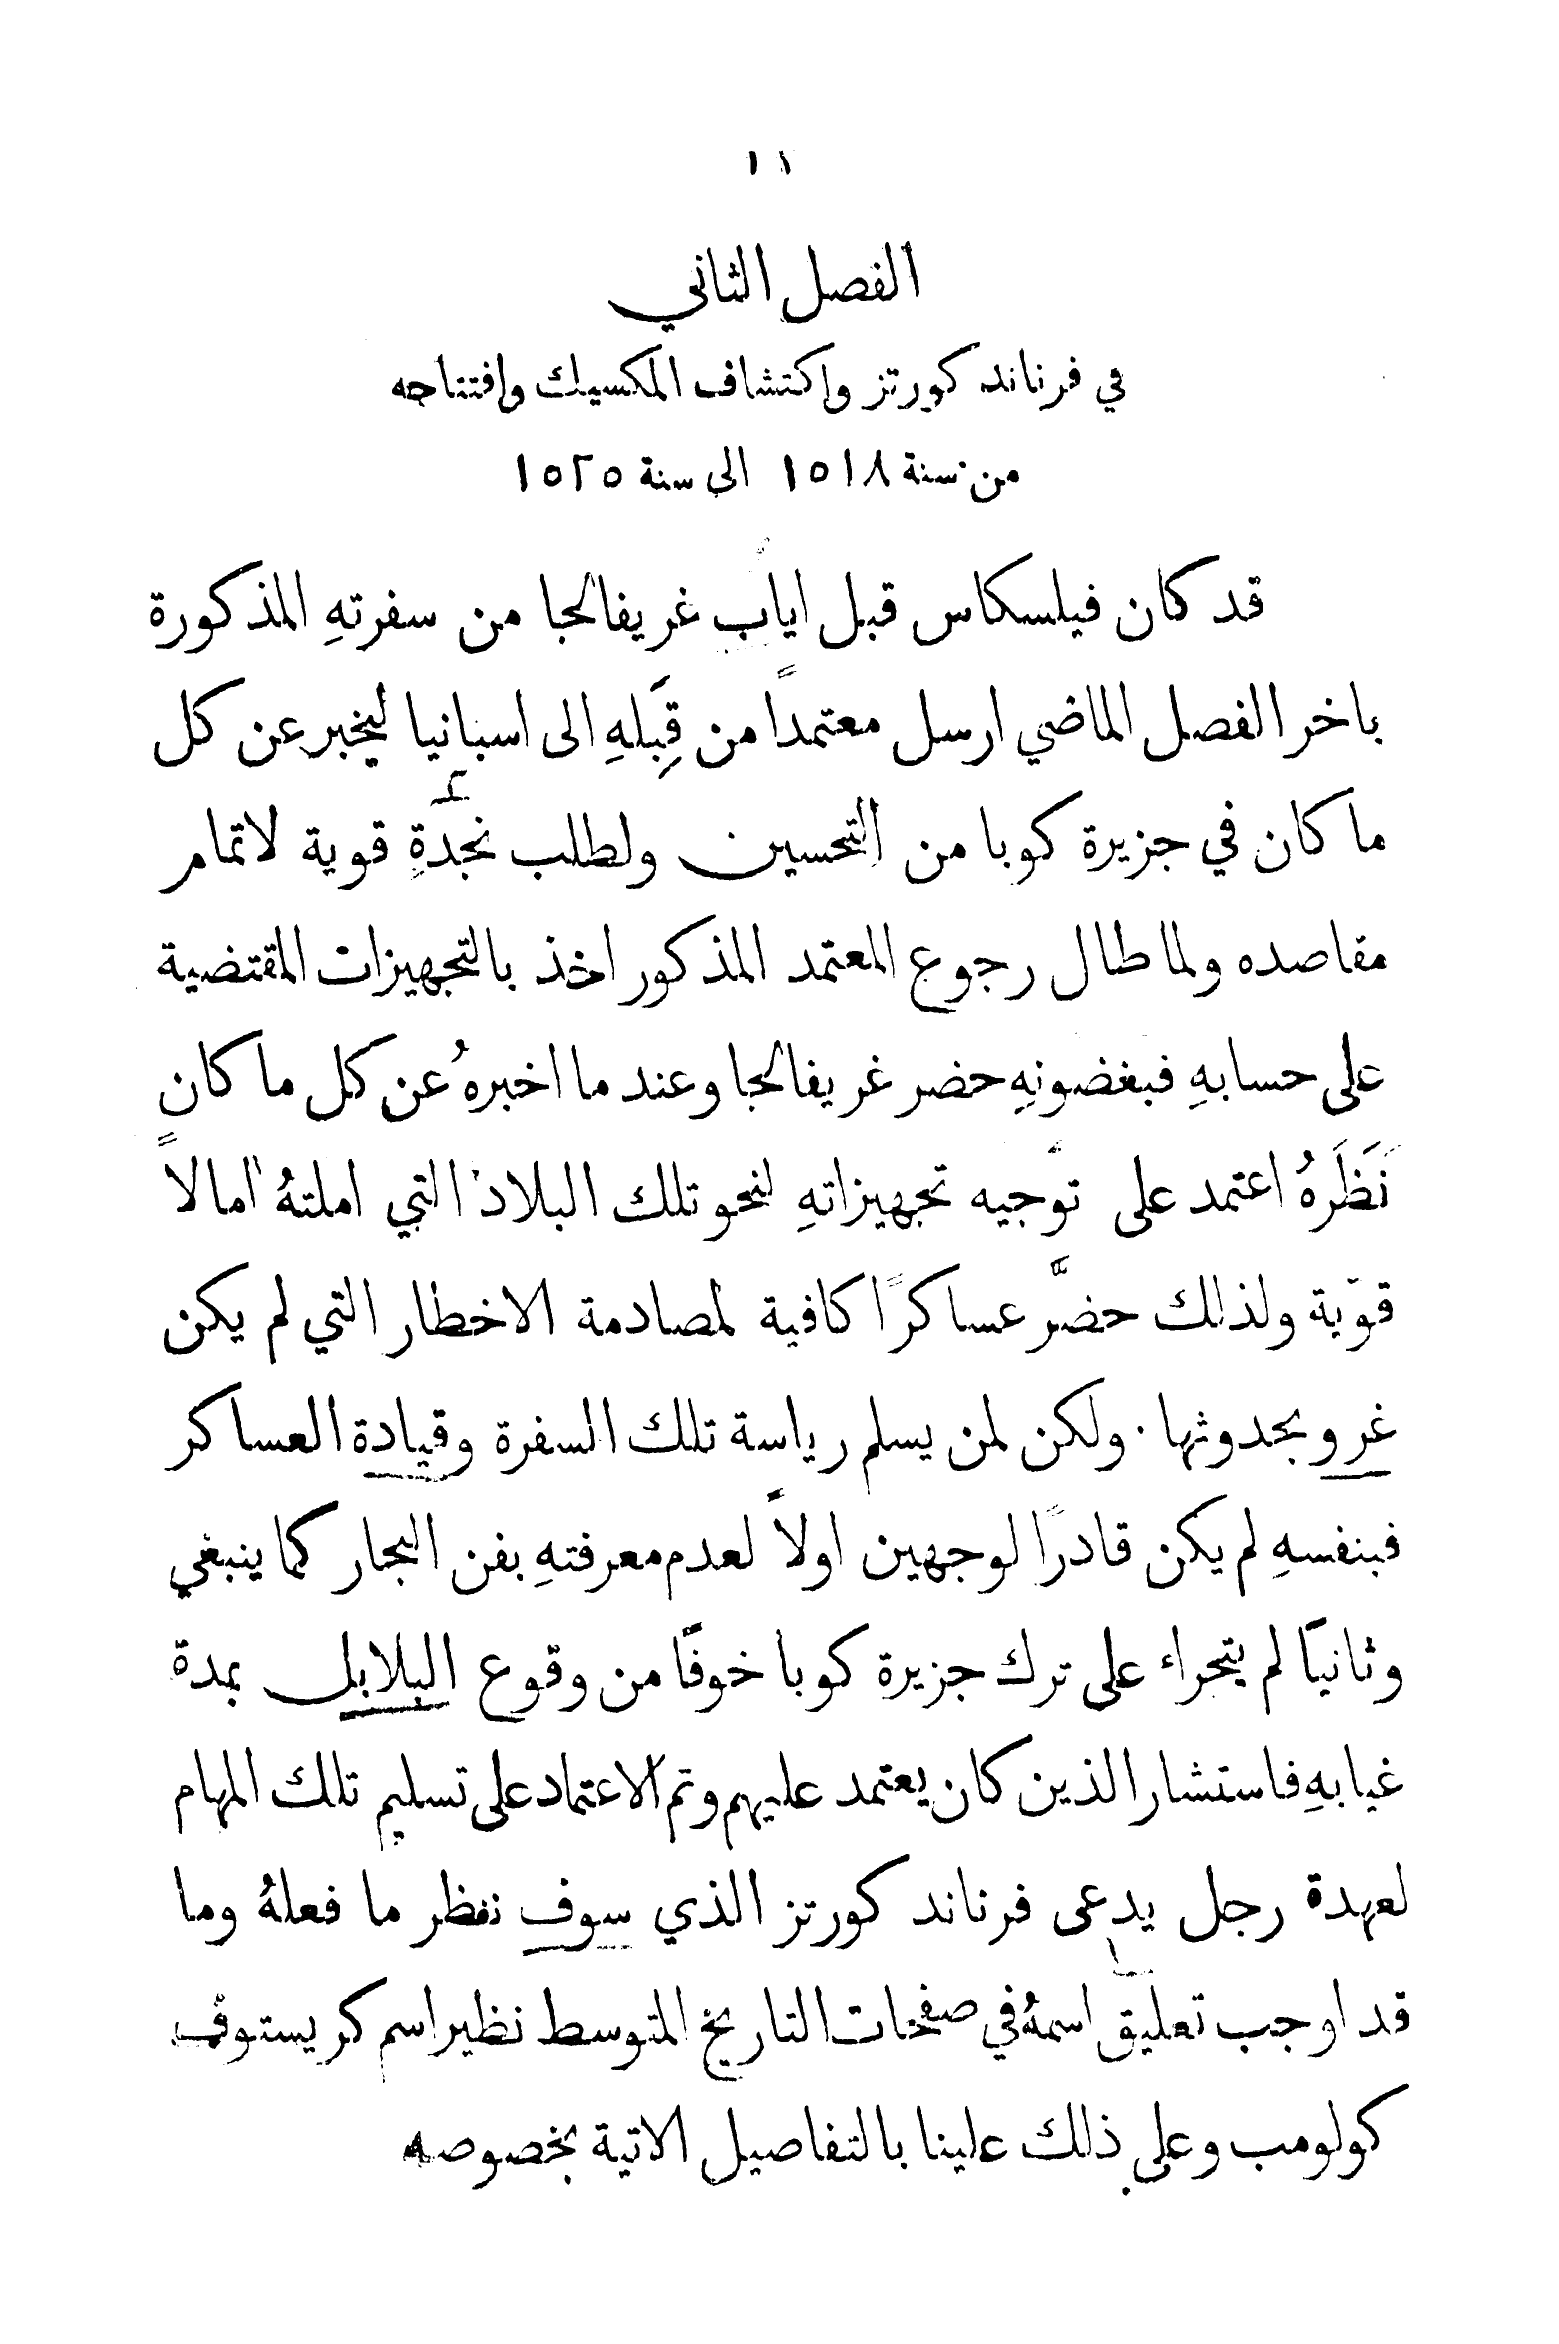 ١١
الفصل الثاني
في فرناند كورتز واكتشاف المكسيك وافتتاحه
من سنة ١٥١٨ الى سنة ١٥٢٥
قد كان فيلسكاس قبل اياب غريفالحجا من سفرتهِ المذكورة
باخر الفصل الماضي ارسل معتمدًا من قِبَلهِ الى اسبانيا ليخبر عن كل
ما كان في جزيرة كوبا من التحسين ولطلب نجدةٍ قوية لاتمام
مقاصده ولما طال رجوع المعتمد المذكور اخذ بالتجهيزات المقتضية
على حسابهِ فبغضونهِ حضر غريفالحجا وعند ما اخبرهُ عن كل ما كان
نَظَرهُ اعتمد على توجيه تجهيزاتهِ لنحو تلك البلاد التي املتهُ امالاً
قوّية ولذلك حضَّر عساكرًا كافية لمصادمة الاخطار التي لم يكن
غرو بحدوثها . ولكن لمن يسلم رياسة تلك السفرة وقيادة العساكر
فبنفسهِ لم يكن قادرًا لوجهين اولاً لعدم معرفتهِ بفن البحار كما ينبغي
وثانيًا لم يتجراء على ترك جزيرة كوبا خوفًا من وقوع البلابل بمدة
غيابهِ فاستشار الذين كان يعتمد عليهم وتم الاعتماد على تسليم تلك المهام
لعهدة رجل يدعى فرناند كورتز الذي سوف ننظر ما فعلهُ وما
قد اوجب تعليق اسمهُ في صفحات التاريخ المتوسط نظير اسم كريستوف
كولومب وعلى ذلك علينا بالتفاصيل الاتية بخصوصه